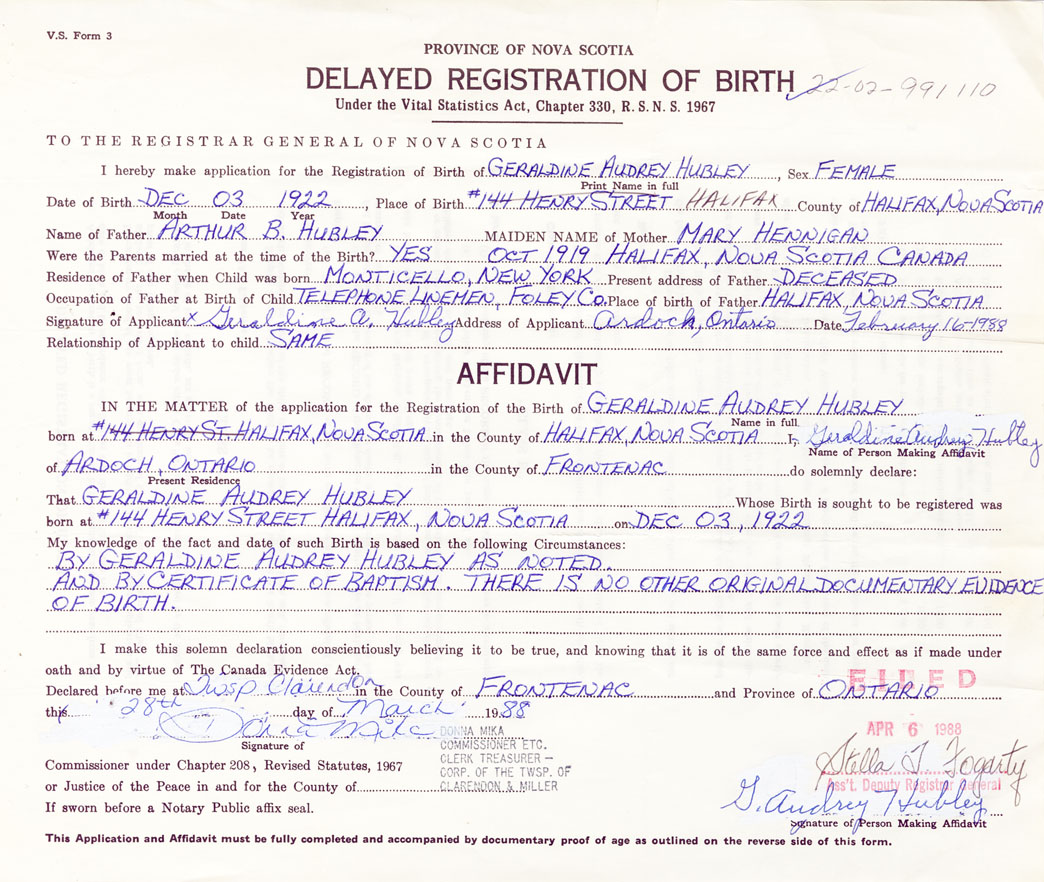 V.S. Form 3
PROVINCE OF NOVA SCOTIA
DELAYED REGISTRATION OF BIRTH 22-02-991110
Under the Vital Statistics Act, Chapter 330, R.S.N.S. 1967
TO THE REGISTRAR GENERAL OF NOVA SCOTIA
I hereby make application for the Registration of Birth of GERALDINE AUDREY HUBLEY, Sex FEMALE
Print Name in full
Date of Birth DEC 03 1922, Place of Birth #144 HENRY STREET HALIFAX County of HALIFAX, NOVA SCOTIA
Month Date Year
Name of Father ARTHUR B. HUBLEY MAIDEN NAME of Mother MARY HENNIGAN
Were the Parents married at the time of the Birth? YES OCT 1919 HALIFAX, NOVA SCOTIA CANADA
Residence of Father when Child was born MONTICELLO, NEW YORK Present address of Father DECEASED
Occupation of Father at Birth of Child TELEPHONE LINEMEN, FOLEY CO. Place of birth of Father HALIFAX, NOVA SCOTIA
Signature of Applicant x Geraldine A. Hubley Address of Applicant Ardoch, Ontario Date February 16-1988
Relationship of Applicant to child SAME
AFFIDAVIT
IN THE MATTER of the application for the Registration of the Birth of GERALDINE AUDREY HUBLEY
Name in full
born at #144 HENRY ST. HALIFAX, NOVA SCOTIA in the County of HALIFAX, NOVA SCOTIA I, Geraldine Audrey Hubley
Name of Person Making Affidavit
of ARDOCH, ONTARIO in the County of FRONTENAC do solemnly declare:
Present Residence
That GERALDINE AUDREY HUBLEY Whose Birth is sought to be registered was
born at #144 HENRY STREET HALIFAX, NOVA SCOTIA on DEC 03, 1922
My knowledge of the fact and date of such Birth is based on the following Circumstances:
BY GERALDINE AUDREY HUBLEY AS NOTED.
AND BY CERTIFICATE OF BAPTISM. THERE IS NO OTHER ORIGINAL DOCUMENTARY EVIDENCE
OF BIRTH.
I make this solemn declaration conscientiously believing it to be true, and knowing that it is of the same force and effect as if made under
oath and by virtue of The Canada Evidence Act.
FILED
Declared before me at Twsp Clarendon in the County of FRONTENAC and Province of ONTARIO
this 28th day of March 1988
APR 6 1988
Donna Mika
Signature of
DONNA MIKA
COMMISSIONER ETC.
CLERK TREASURER –
CORP. OF THE TWSP. OF
CLARENDON & MILLER
Commissioner under Chapter 208, Revised Statutes, 1967
or Justice of the Peace in and for the County of
If sworn before a Notary Public affix seal.
Stella T Fogarty
Ass't. Deputy Registrar General
G. Audrey Hubley
Signature of Person Making Affidavit
This Application and Affidavit must be fully completed and accompanied by documentary proof of age as outlined on the reverse side of this form.